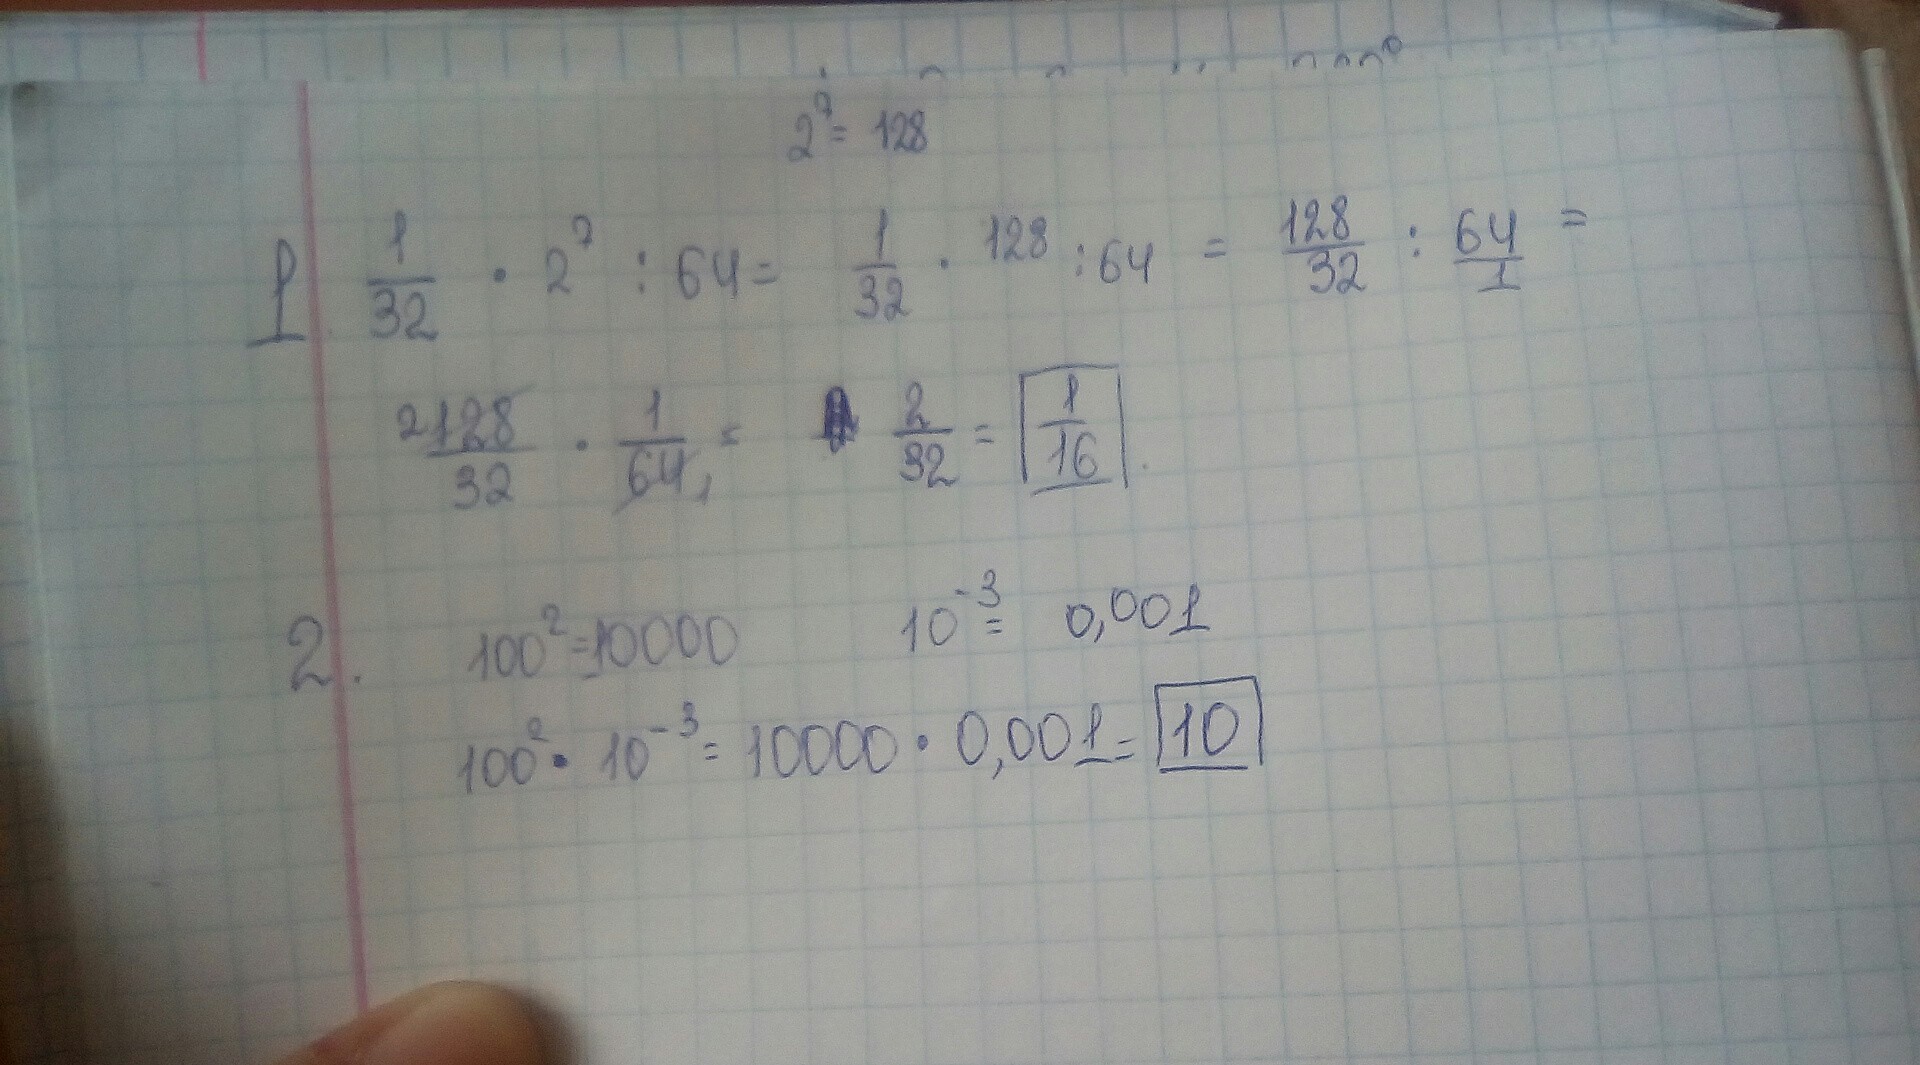 2⁷ = 128
1. 1/32 · 2⁷ : 64 = 1/32 · 128 : 64 = 128/32 : 64/1 =
2 128/32 · 1/64, 1 = 2/32 = 1/16.
2. 100² = 10000 10⁻³ = 0,001
100² · 10⁻³ = 10000 · 0,001 = 10